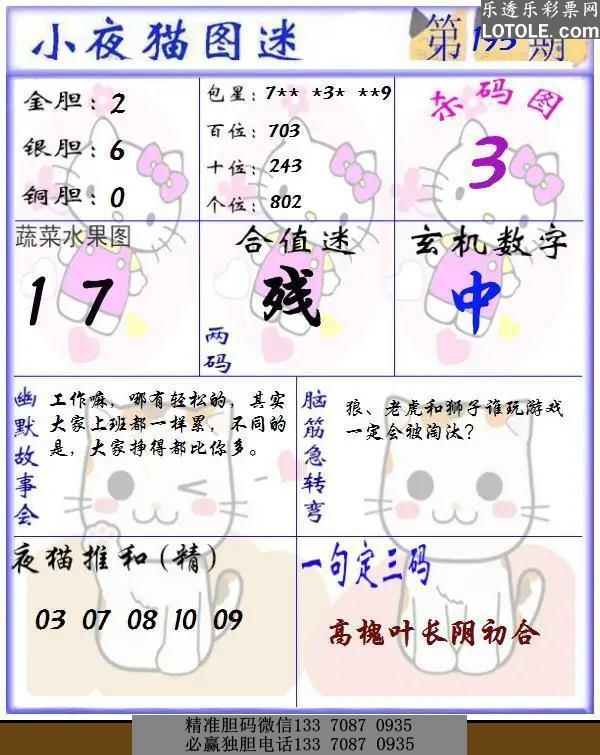 乐透乐彩票网
LOTOLE.COM
小夜猫图迷
第193期
金胆：2
银胆：6
铜胆：0
包星：7** *3* **9
百位：703
十位：243
个位：802
杀码图
3
蔬菜水果图
1 7
合值谜
残
两码
玄机数字
中
幽默故事会
工作嘛，哪有轻松的，其实
大家上班都一样累，不同的
是，大家挣得都比你多。
脑筋急转弯
狼、老虎和狮子谁玩游戏
一定会被淘汰？
夜猫推和(精)
03 07 08 10 09
一句定三码
高槐叶长阴初合
精准胆码微信133 7087 0935
必赢独胆电话133 7087 0935